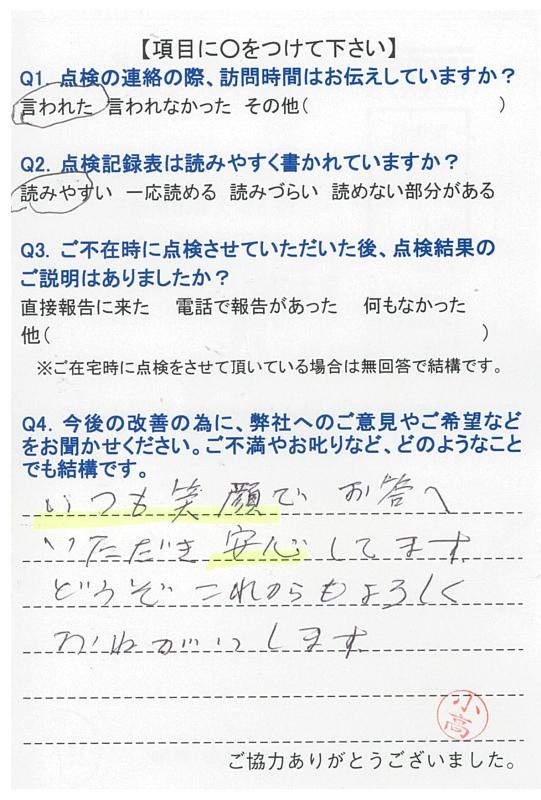 【項目に〇をつけて下さい】
Q1. 点検の連絡の際、訪問時間はお伝えしていますか？
言われた 言われなかった その他( )
Q2. 点検記録表は読みやすく書かれていますか？
読みやすい 一応読める 読みづらい 読めない部分がある
Q3. ご不在時に点検させていただいた後、点検結果の
ご説明はありましたか？
直接報告に来た 電話で報告があった 何もなかった
他( )
※ご在宅時に点検をさせて頂いている場合は無回答で結構です。
Q4. 今後の改善の為に、弊社へのご意見やご希望など
をお聞かせください。ご不満やお叱りなど、どのようなこと
でも結構です。
いつも笑顔で お答へ
いただき安心してます
どうぞこれからもよろしく
おねがいします
小高
ご協力ありがとうございました。